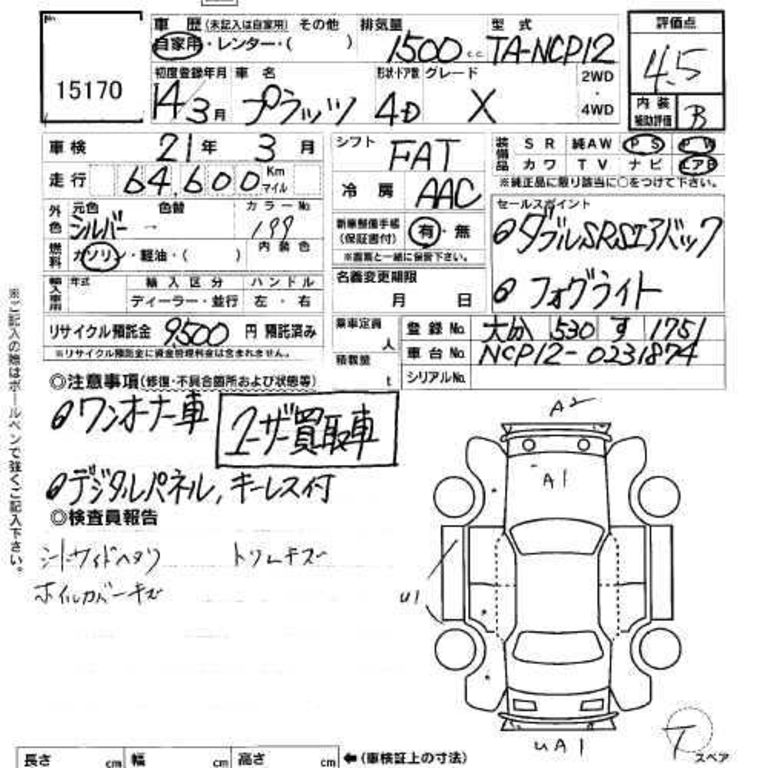 15170
車歴 (未記入は自家用) その他
自家用・レンター・( )
排気量 1500 c.c.
型式 TA-NCP12
評価点 4.5
内装補助評価 B
初度登録年月 14/3月
車名 プラッツ
形状・ドア数 4D
グレード X
2WD・4WD
車検 21年 3月
走行 64,600 Km マイル
シフト FAT
冷房 AAC
装備品 SR 純AW PS PW
カワ TV ナビ エアB
※純正品に限り該当に○をつけて下さい。
外色 元色 シルバー 色替 カラーNo. 199
燃料 ガソリン・軽油・( ) 内装色
新車整備手帳(保証書付) 有・無
※書類と一緒に保管下さい。
セールスポイント
ダブルSRSエアバック
フォグライト
輸入車用 年式 輸入区分 ハンドル
ディーラー・並行 左・右
名義変更期限 月 日
リサイクル預託金 9500 円 預託済み
※リサイクル預託金に資金管理料金は含まれません。
乗車定員 人
積載量 t
登録No. 大分 530 す 1751
車台No. NCP12-0231874
シリアルNo.
◎注意事項(修復・不具合箇所および状態等)
ワンオーナー車
ユーザー買取車
デジタルパネル, キーレス付
◎検査員報告
シートサイドヘタリ トリムキズ
ホイルカバーキズ
※ご記入の際はボールペンで強くご記入下さい。
A2
A1
U1
UA1
T スペア
長さ cm 幅 cm 高さ cm ←(車検証上の寸法)